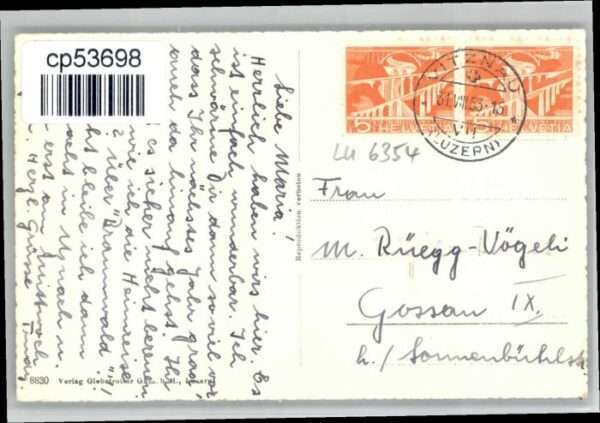 cp53698
Liebe Maria!
Herrlich haben wirs hier. Es
ist einfach wunderbar. Ich
schwärme Dir dann so viel vor
dass Ihr nächstes Jahr grad
auch da hinauf gehst. Ihr
es sicher nicht bereuen
wie ich die Heimreise
? über "Braunwald"!
bleibe ich dann
in Uznach u.
erst am Mittwoch
Herzl. Grüsse
8830 Verlag Globetrotter G.m.b.H., Luzern
Reproduktion verboten
5 HELVETIA
HELVETIA
VITZNAU
31.VII.53-15
(LUZERN)
LU 6354
Frau
M. Rüegg-Vögeli
Gossau IX.
h./ Sonnenbühlstr